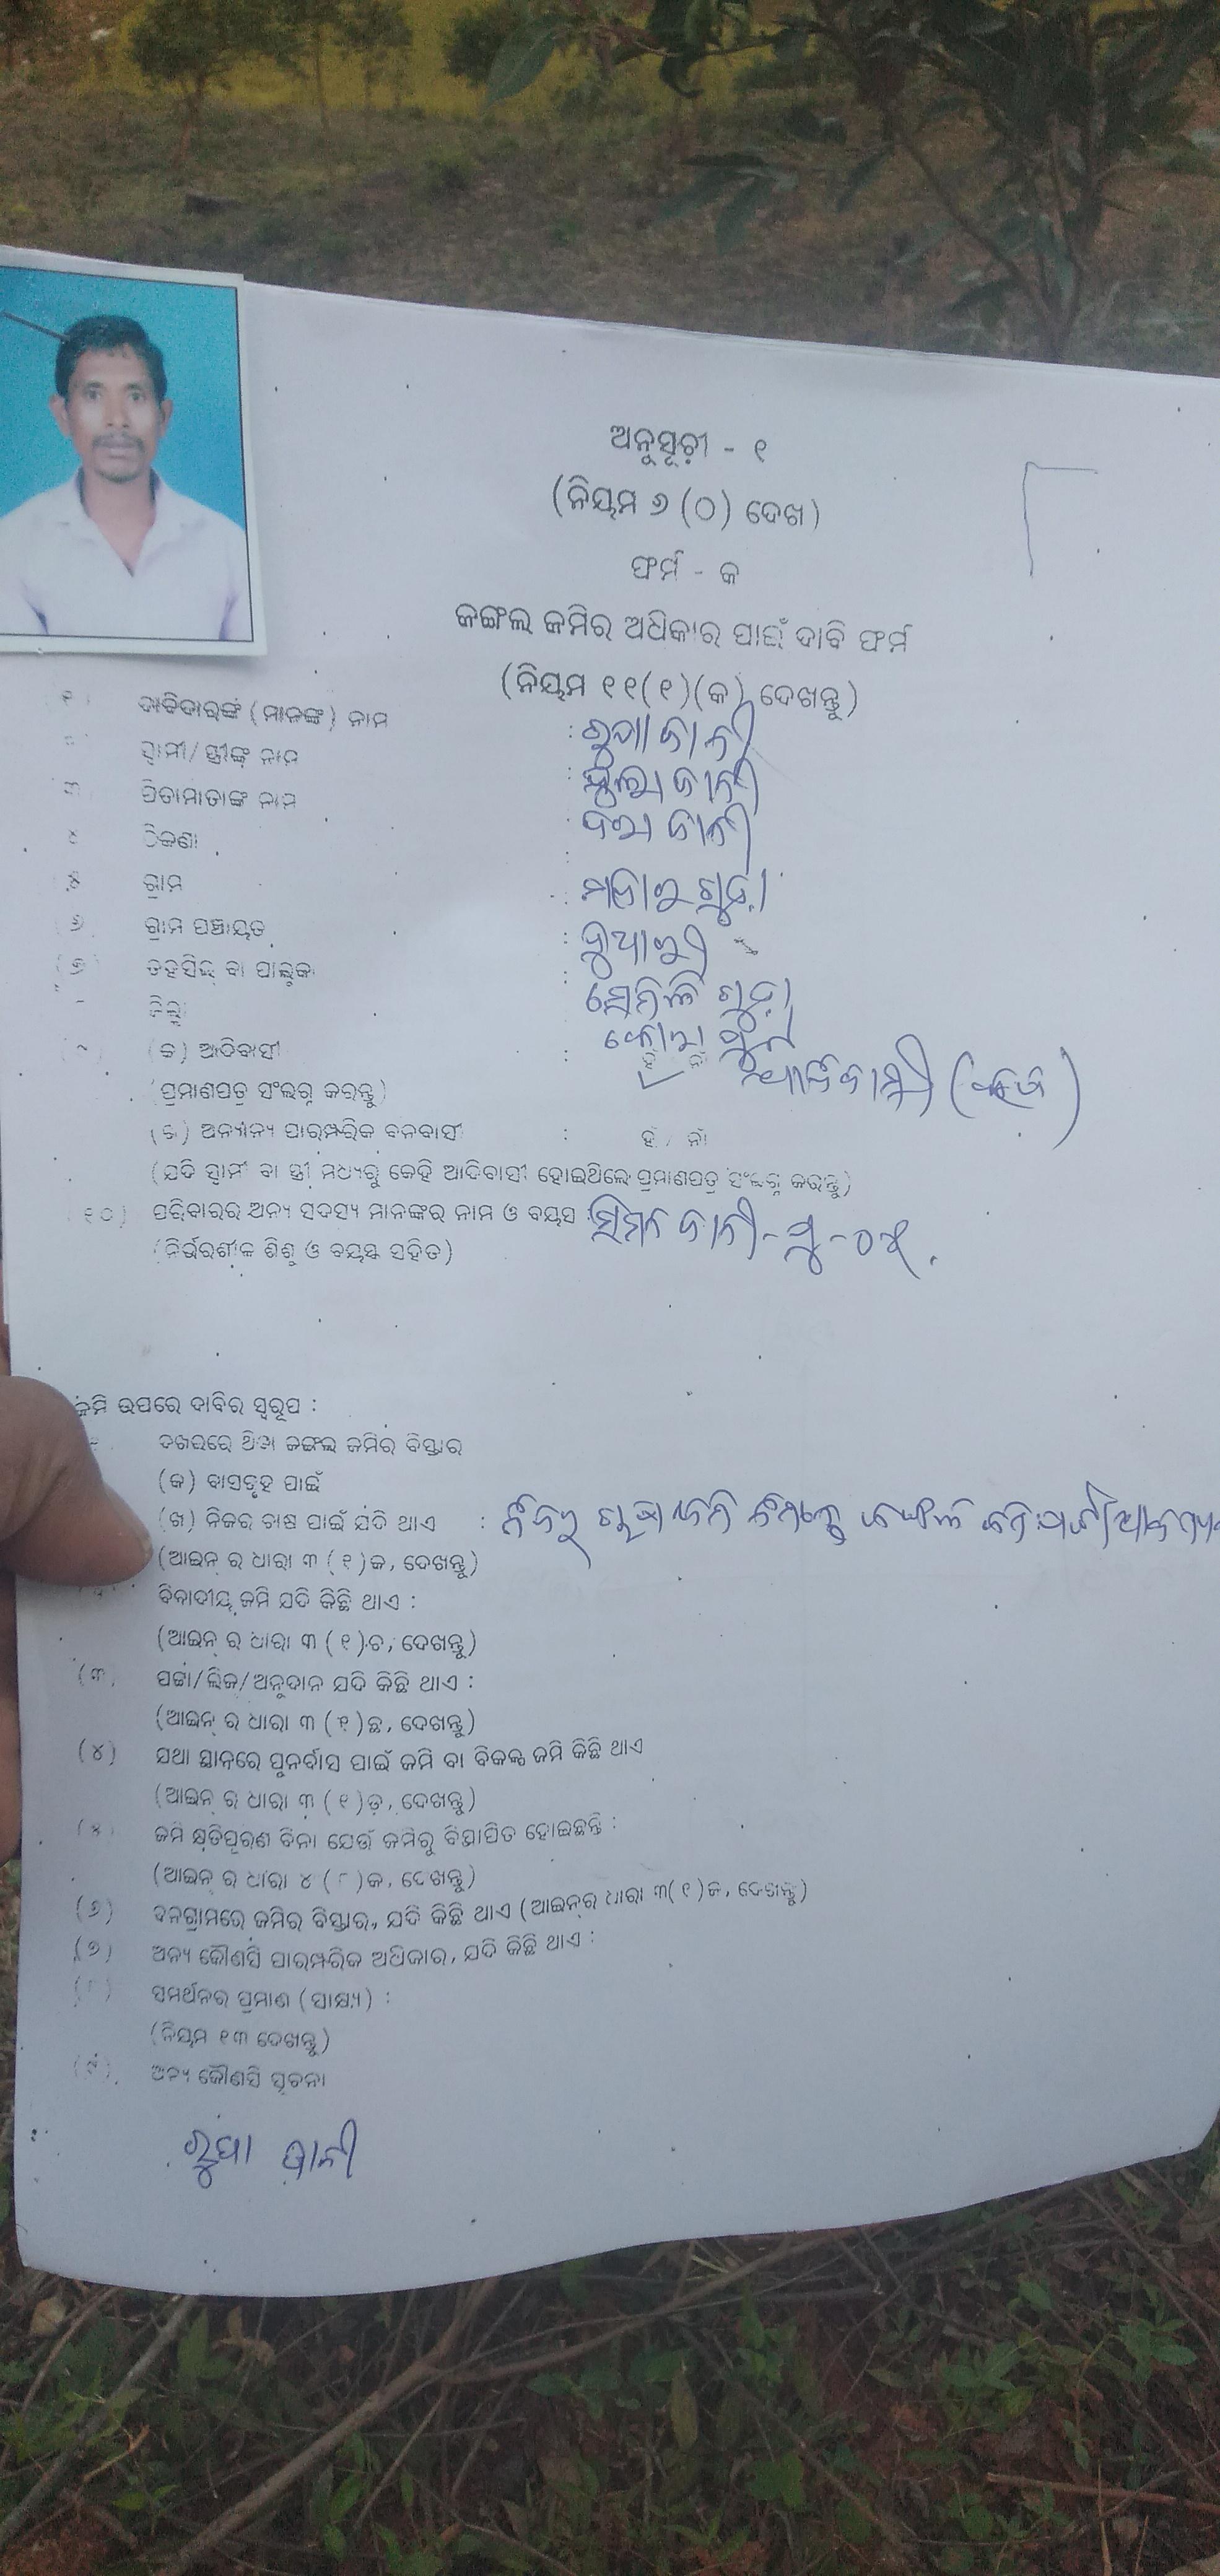 ଅନୁସୂଚୀ - ୧
(ନିୟମ ୬ (୦) ଦେଖ)
ଫର୍ମ - କ
ଜଙ୍ଗଲ ଜମିର ଅଧିକାର ପାଇଁ ଦାବି ଫର୍ମ
(ନିୟମ ୧୧(୧)(କ) ଦେଖନ୍ତୁ)
ଦାବିଦାରଙ୍କ (ମାନଙ୍କ) ନାମ : ରୁପା ଜାନୀ
ସ୍ୱାମୀ/ସ୍ତ୍ରୀଙ୍କ ନାମ : ଜାନୀ
ପିତାମାତାଙ୍କ ନାମ : ଜାନୀ
୪ ଠିକଣା :
୫ ଗ୍ରାମ : ଗୁଡ଼ା
୬ ଗ୍ରାମ ପଞ୍ଚାୟତ :
(୭) ତହସିଲ୍ ବା ତାଲୁକା : ସେମିଳିଗୁଡ଼ା
ଜିଲ୍ଲା କୋରାପୁଟ
(କ) ଆଦିବାସୀ : ହଁ ନାଁ ଆଦିବାସୀ
(ପ୍ରମାଣପତ୍ର ସଂଲଗ୍ନ କରନ୍ତୁ)
(ଖ) ଅନ୍ୟାନ୍ୟ ପାରମ୍ପରିକ ବନବାସୀ : ହଁ / ନାଁ
(ଯଦି ସ୍ୱାମୀ ବା ସ୍ତ୍ରୀ ମଧ୍ୟରୁ କେହି ଆଦିବାସୀ ହୋଇଥିଲେ ପ୍ରମାଣପତ୍ର ସଂଲଗ୍ନ କରନ୍ତୁ)
(୧୦) ପରିବାରର ଅନ୍ୟ ସଦସ୍ୟ ମାନଙ୍କର ନାମ ଓ ବୟସ : ଜାନୀ - ପୁ -
(ନିର୍ଭରଶୀଳ ଶିଶୁ ଓ ବୟସ୍କ ସହିତ)
ଜମି ଉପରେ ଦାବିର ସ୍ୱରୂପ :
ଦଖଲରେ ଥିବା ଜଙ୍ଗଲ ଜମିର ବିସ୍ତାର
(କ) ବାସଗୃହ ପାଇଁ
(ଖ) ନିଜର ଚାଷ ପାଇଁ ଯଦି ଥାଏ :
(ଆଇନ୍ ର ଧାରା ୩ (୧)କ, ଦେଖନ୍ତୁ)
ବିବାଦୀୟ ଜମି ଯଦି କିଛି ଥାଏ :
(ଆଇନ୍ ର ଧାରା ୩ (୧)ଚ, ଦେଖନ୍ତୁ)
(୩) ପଟ୍ଟା/ଲିଜ/ଅନୁଦାନ ଯଦି କିଛି ଥାଏ :
(ଆଇନ୍ ର ଧାରା ୩ (୧)ଛ, ଦେଖନ୍ତୁ)
(୪) ଯଥା ସ୍ଥାନରେ ପୁନର୍ବାସ ପାଇଁ ଜମି ବା ବିକଳ୍ପ ଜମି କିଛି ଥାଏ
(ଆଇନ୍ ର ଧାରା ୩ (୧)ଡ଼, ଦେଖନ୍ତୁ)
(୫) ଜମି କ୍ଷତିପୂରଣ ବିନା ଯେଉଁ ଜମିରୁ ବିସ୍ଥାପିତ ହୋଇଛନ୍ତି :
(ଆଇନ୍ ର ଧାରା ୪ (୮)କ, ଦେଖନ୍ତୁ)
(୬) ବନଗ୍ରାମରେ ଜମିର ବିସ୍ତାର, ଯଦି କିଛି ଥାଏ (ଆଇନ୍‌ର ଧାରା ୩(୧)ଜ, ଦେଖନ୍ତୁ)
(୭) ଅନ୍ୟ କୌଣସି ପାରମ୍ପରିକ ଅଧିକାର, ଯଦି କିଛି ଥାଏ :
(୮) ସମର୍ଥନର ପ୍ରମାଣ (ସାକ୍ଷ୍ୟ) :
(ନିୟମ ୧୩ ଦେଖନ୍ତୁ)
(୯) ଅନ୍ୟ କୌଣସି ସୂଚନା
ରୁପା ଜାନୀ